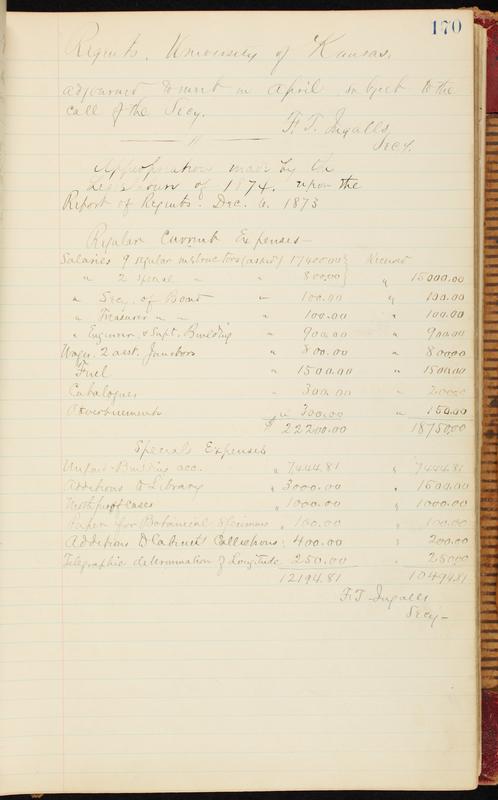 170
Regents, University of Kansas,
adjourned to meet in April, subject to the
call of the Secy.
F. T. Ingalls,
Secy.
"
Appropriations made by the
Legislature of 1874, upon the
Report of Regents. Dec. 6. 1873
Regular Current Expenses—
Salaries 9 regular instructors (asked) 17400.00
" 2 special " " 800.00 " 15000.00
" Secy. of Board " 100.00 " 100.00
" Treasurer " " " 100.00 " 100.00
" Engineer & Supt. Building " 900.00 " 900.00
Wages 2 asst. Janitors " 800.00 " 800.00
Fuel " 1500.00 " 1500.00
Catalogues " 300.00 " 200.00
Advertisements " 300.00 " 150.00
$ 22200.00 18750.00
Special Expenses
Unpaid Building acc. " 7444.81 " 7444.81
Additions to Library " 3000.00 " 1500.00
Mothproof cases " 1000.00 " 1000.00
Paper for Botanical Specimens " 100.00 " 100.00
Additions to Cabinet Collections " 400.00 " 200.00
Telegraphic determination of Longitude 250.00 " 250.00
12194.81 10494.81
F. T. Ingalls
Secy—